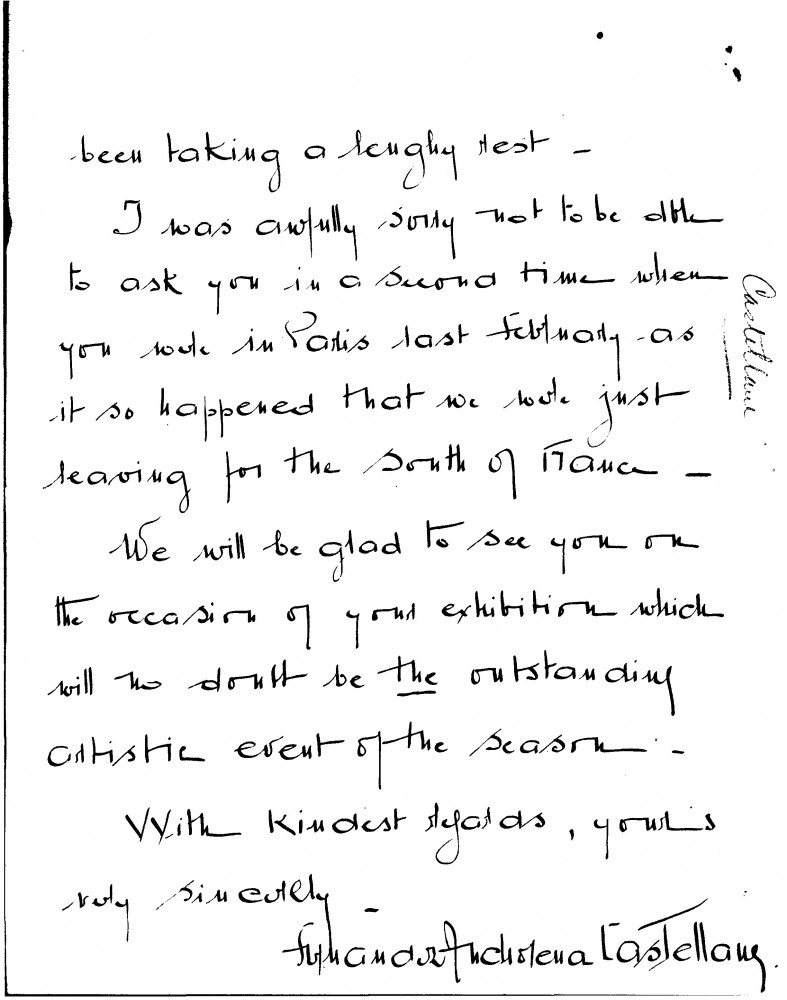 been taking a lenghy rest –
I was awfully sorry not to be able
to ask you in a second time when
you were in Paris last february as
it so happened that we were just
leaving for the South of France –
We will be glad to see you on
the occasion of your exhibition which
will no doubt be the outstanding
artistic event of the season –
With kindest regards, yours
very sincerely –
Anchorena Castellane
Castellane